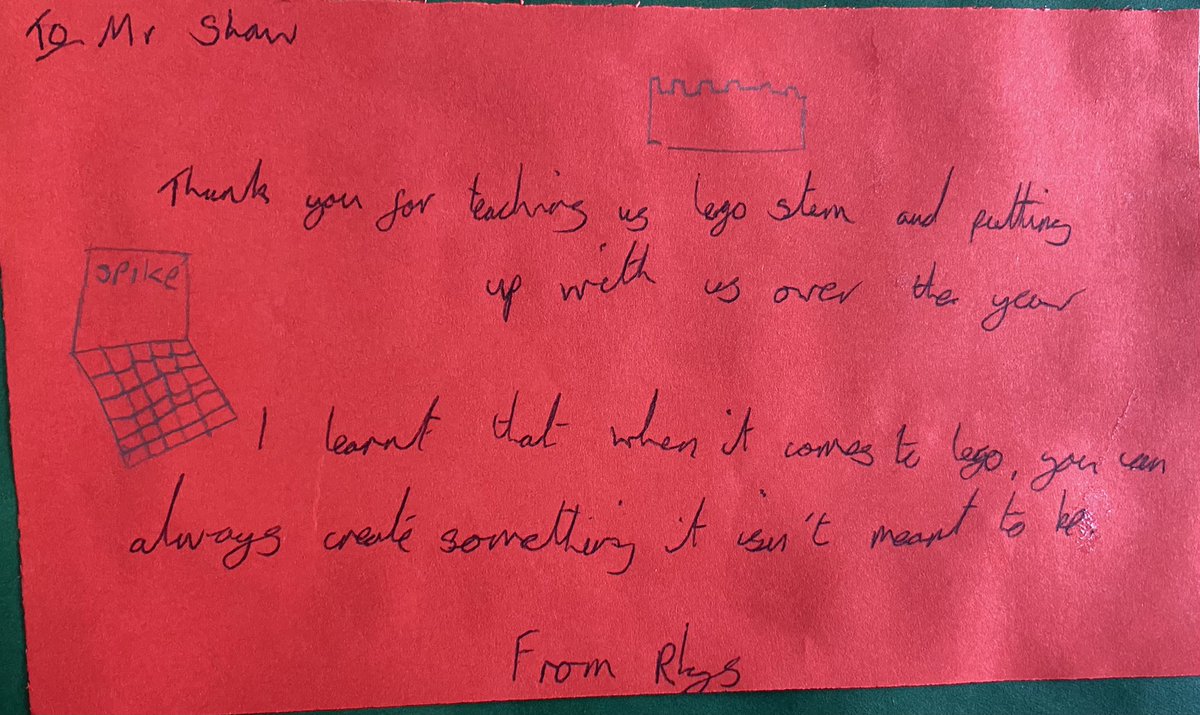 To Mr Shaw
Thank you for teaching us lego stem and putting
up with us over the year
spike
I learnt that when it comes to lego, you can
always create something it isn't meant to be.
From Rhys